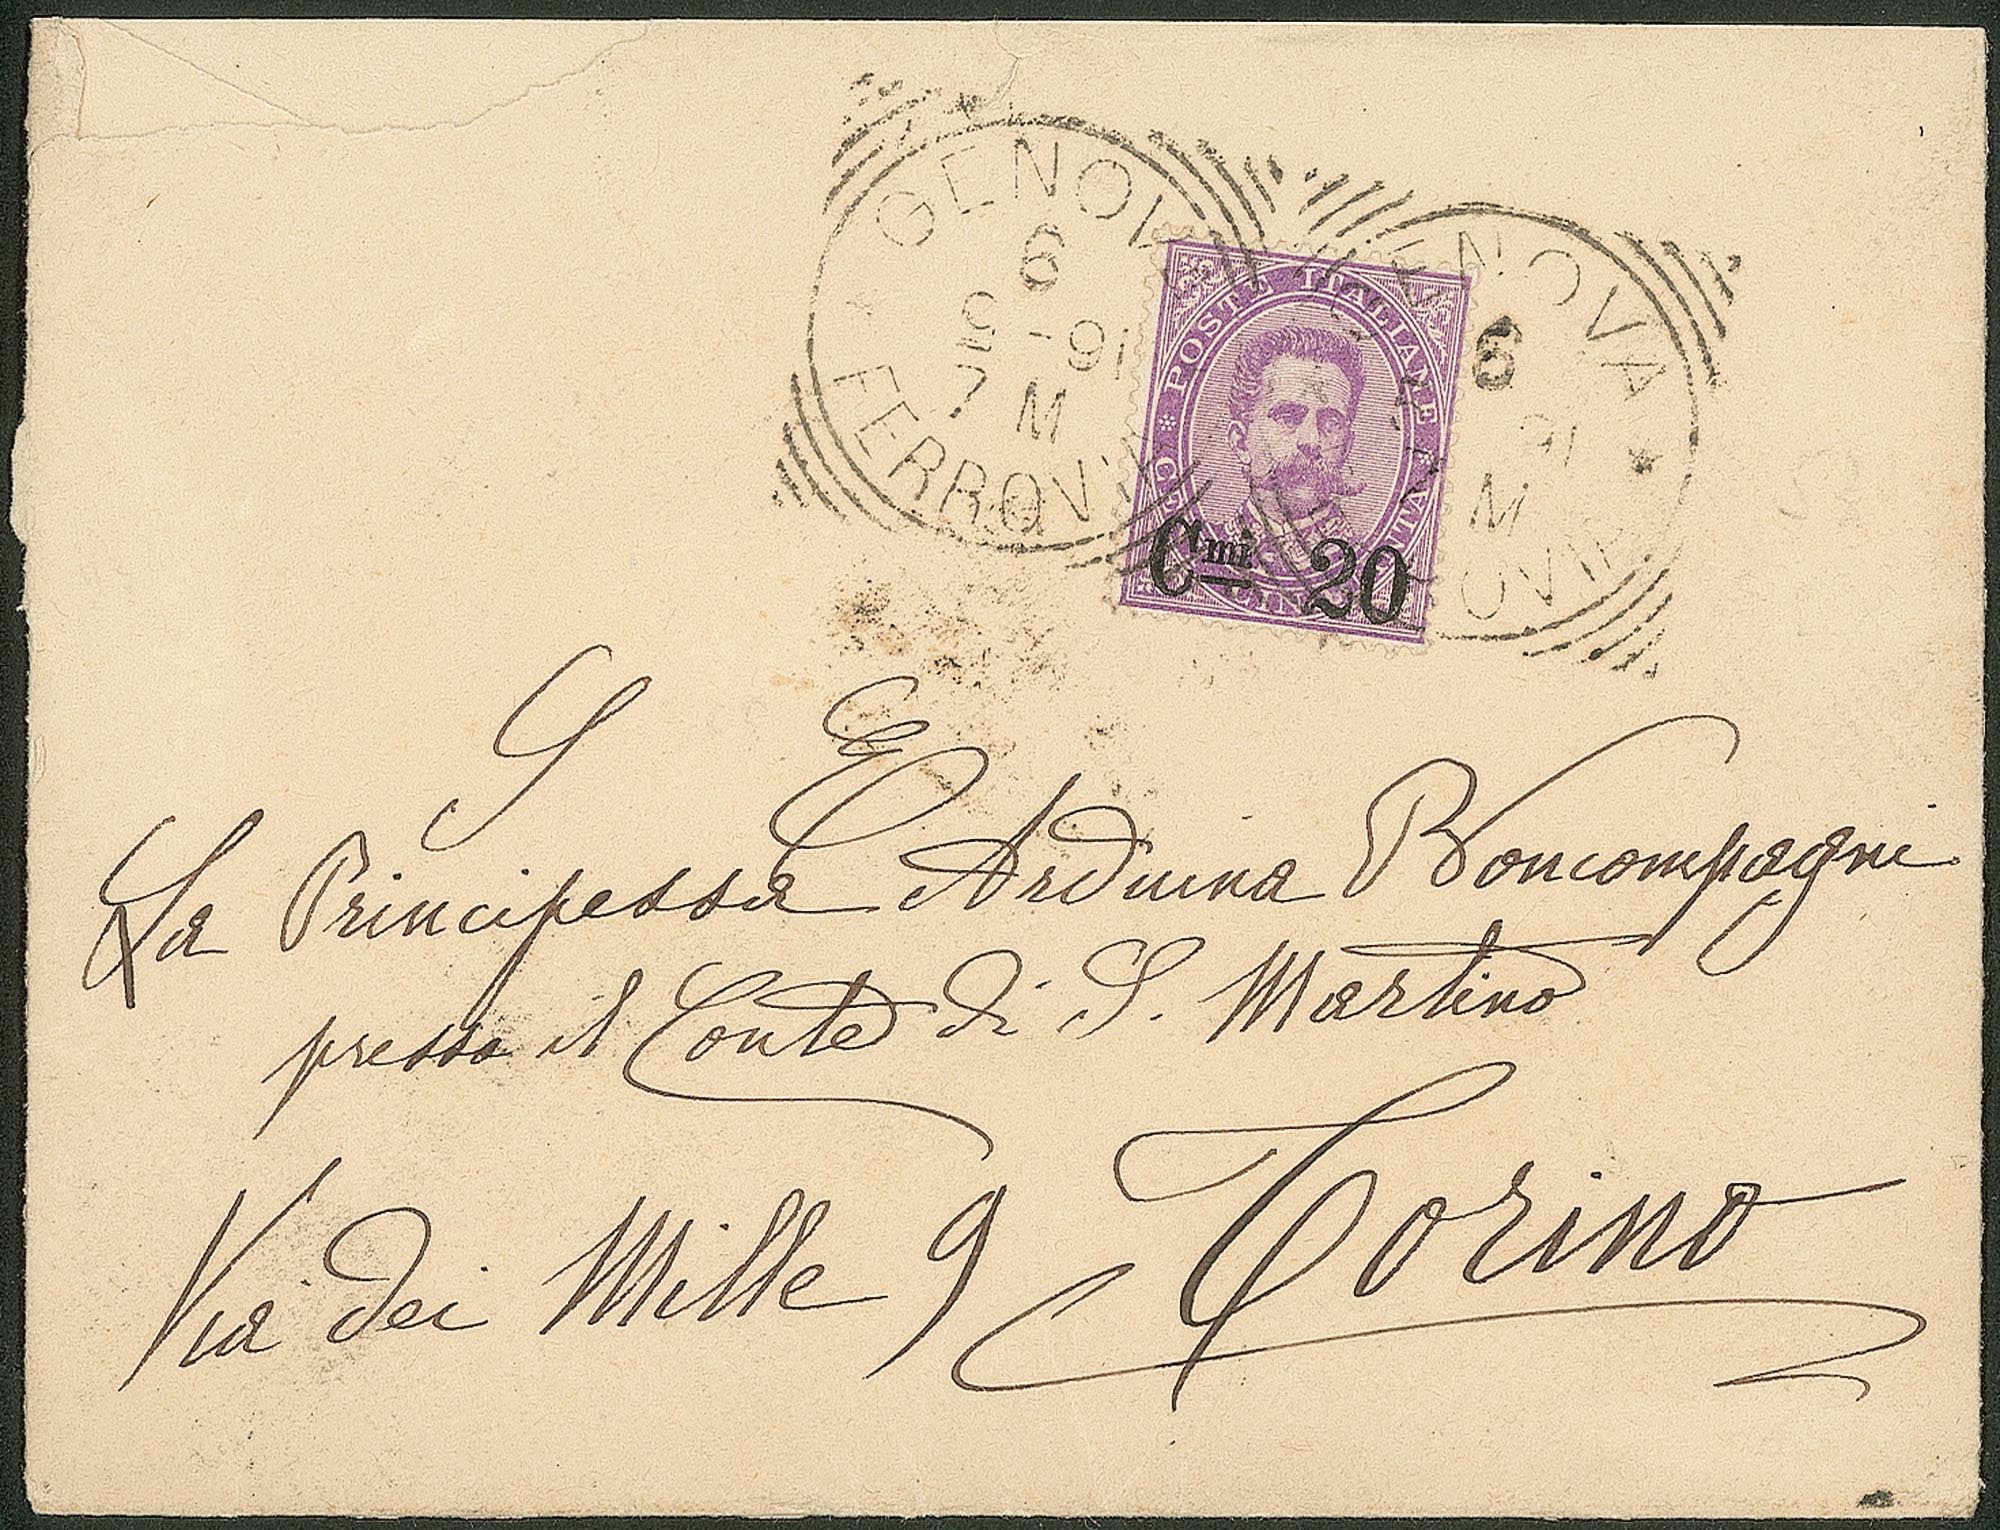 GENOVA
6
9-91
7 M
FERROVIA
GENOVA
6
91
M
POSTE ITALIANE
Cmi 20
S E
La Principessa Arduina Boncompagni
presso il Conte di S. Martino
Via dei Mille 9 Torino